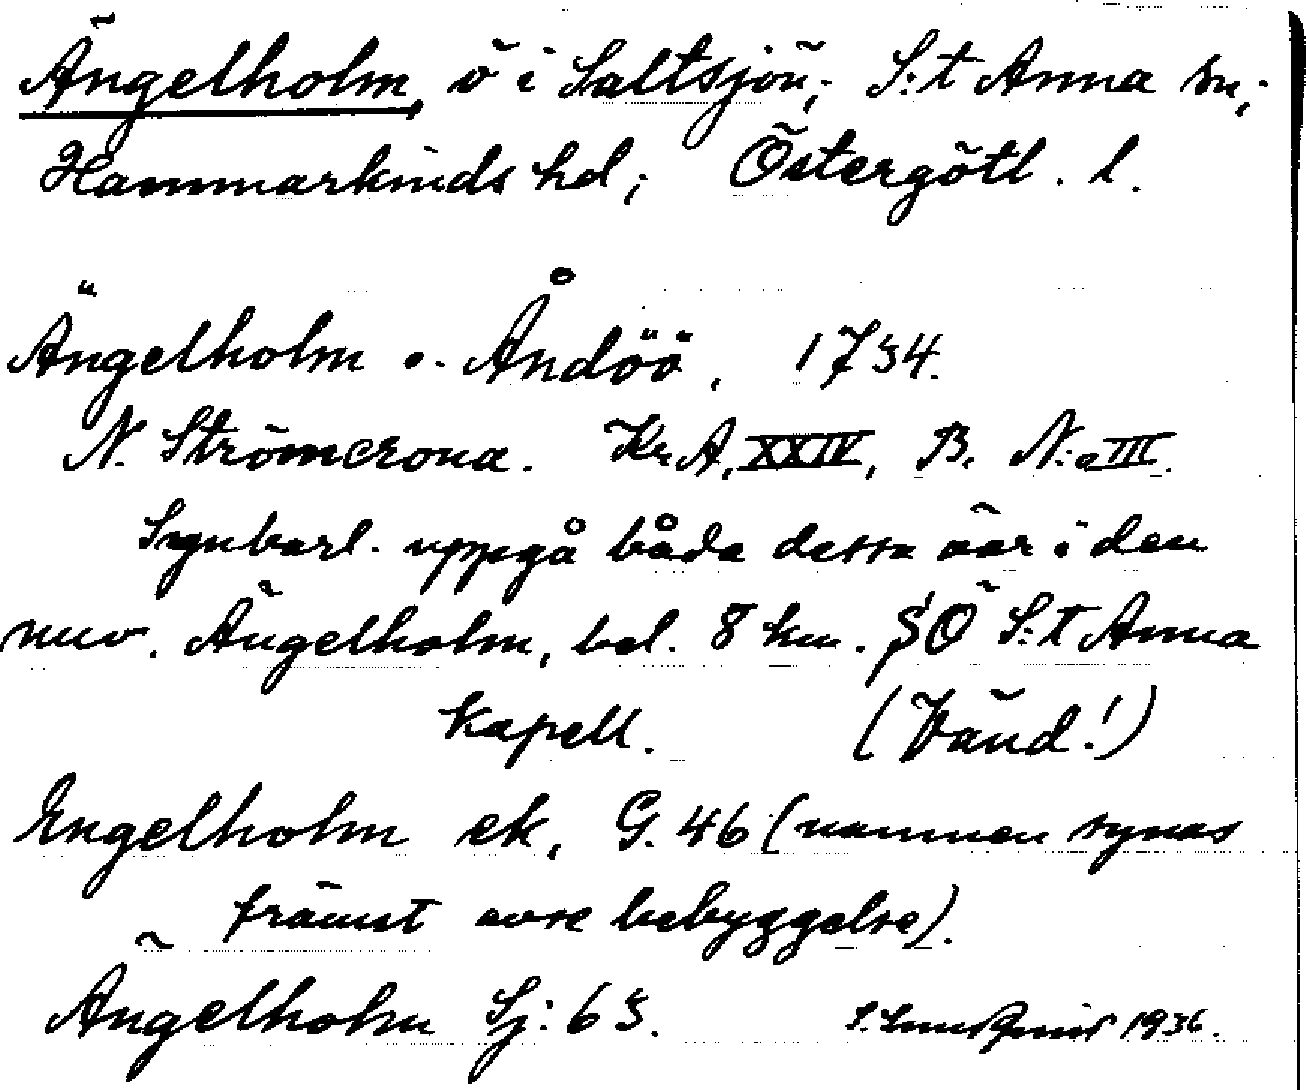 Ängelholm, ö i Saltsjön; S:t Anna sn;
Hammarkinds hd; Östergötl. l.
Ängelholm o. Åndöö, 1734.
N. Strömcrona. Kr. A. XXIV, B. N:o III.
Synbarl. uppgå båda dessa öar i den
nuv. Ängelholm, bel. 8 km. SÖ S:t Anna
kapell. (Vänd!)
Engelholm ek. G. 46 (namnen synas
främst avse bebyggelse).
Ängelholm Sj: 63. 1936.